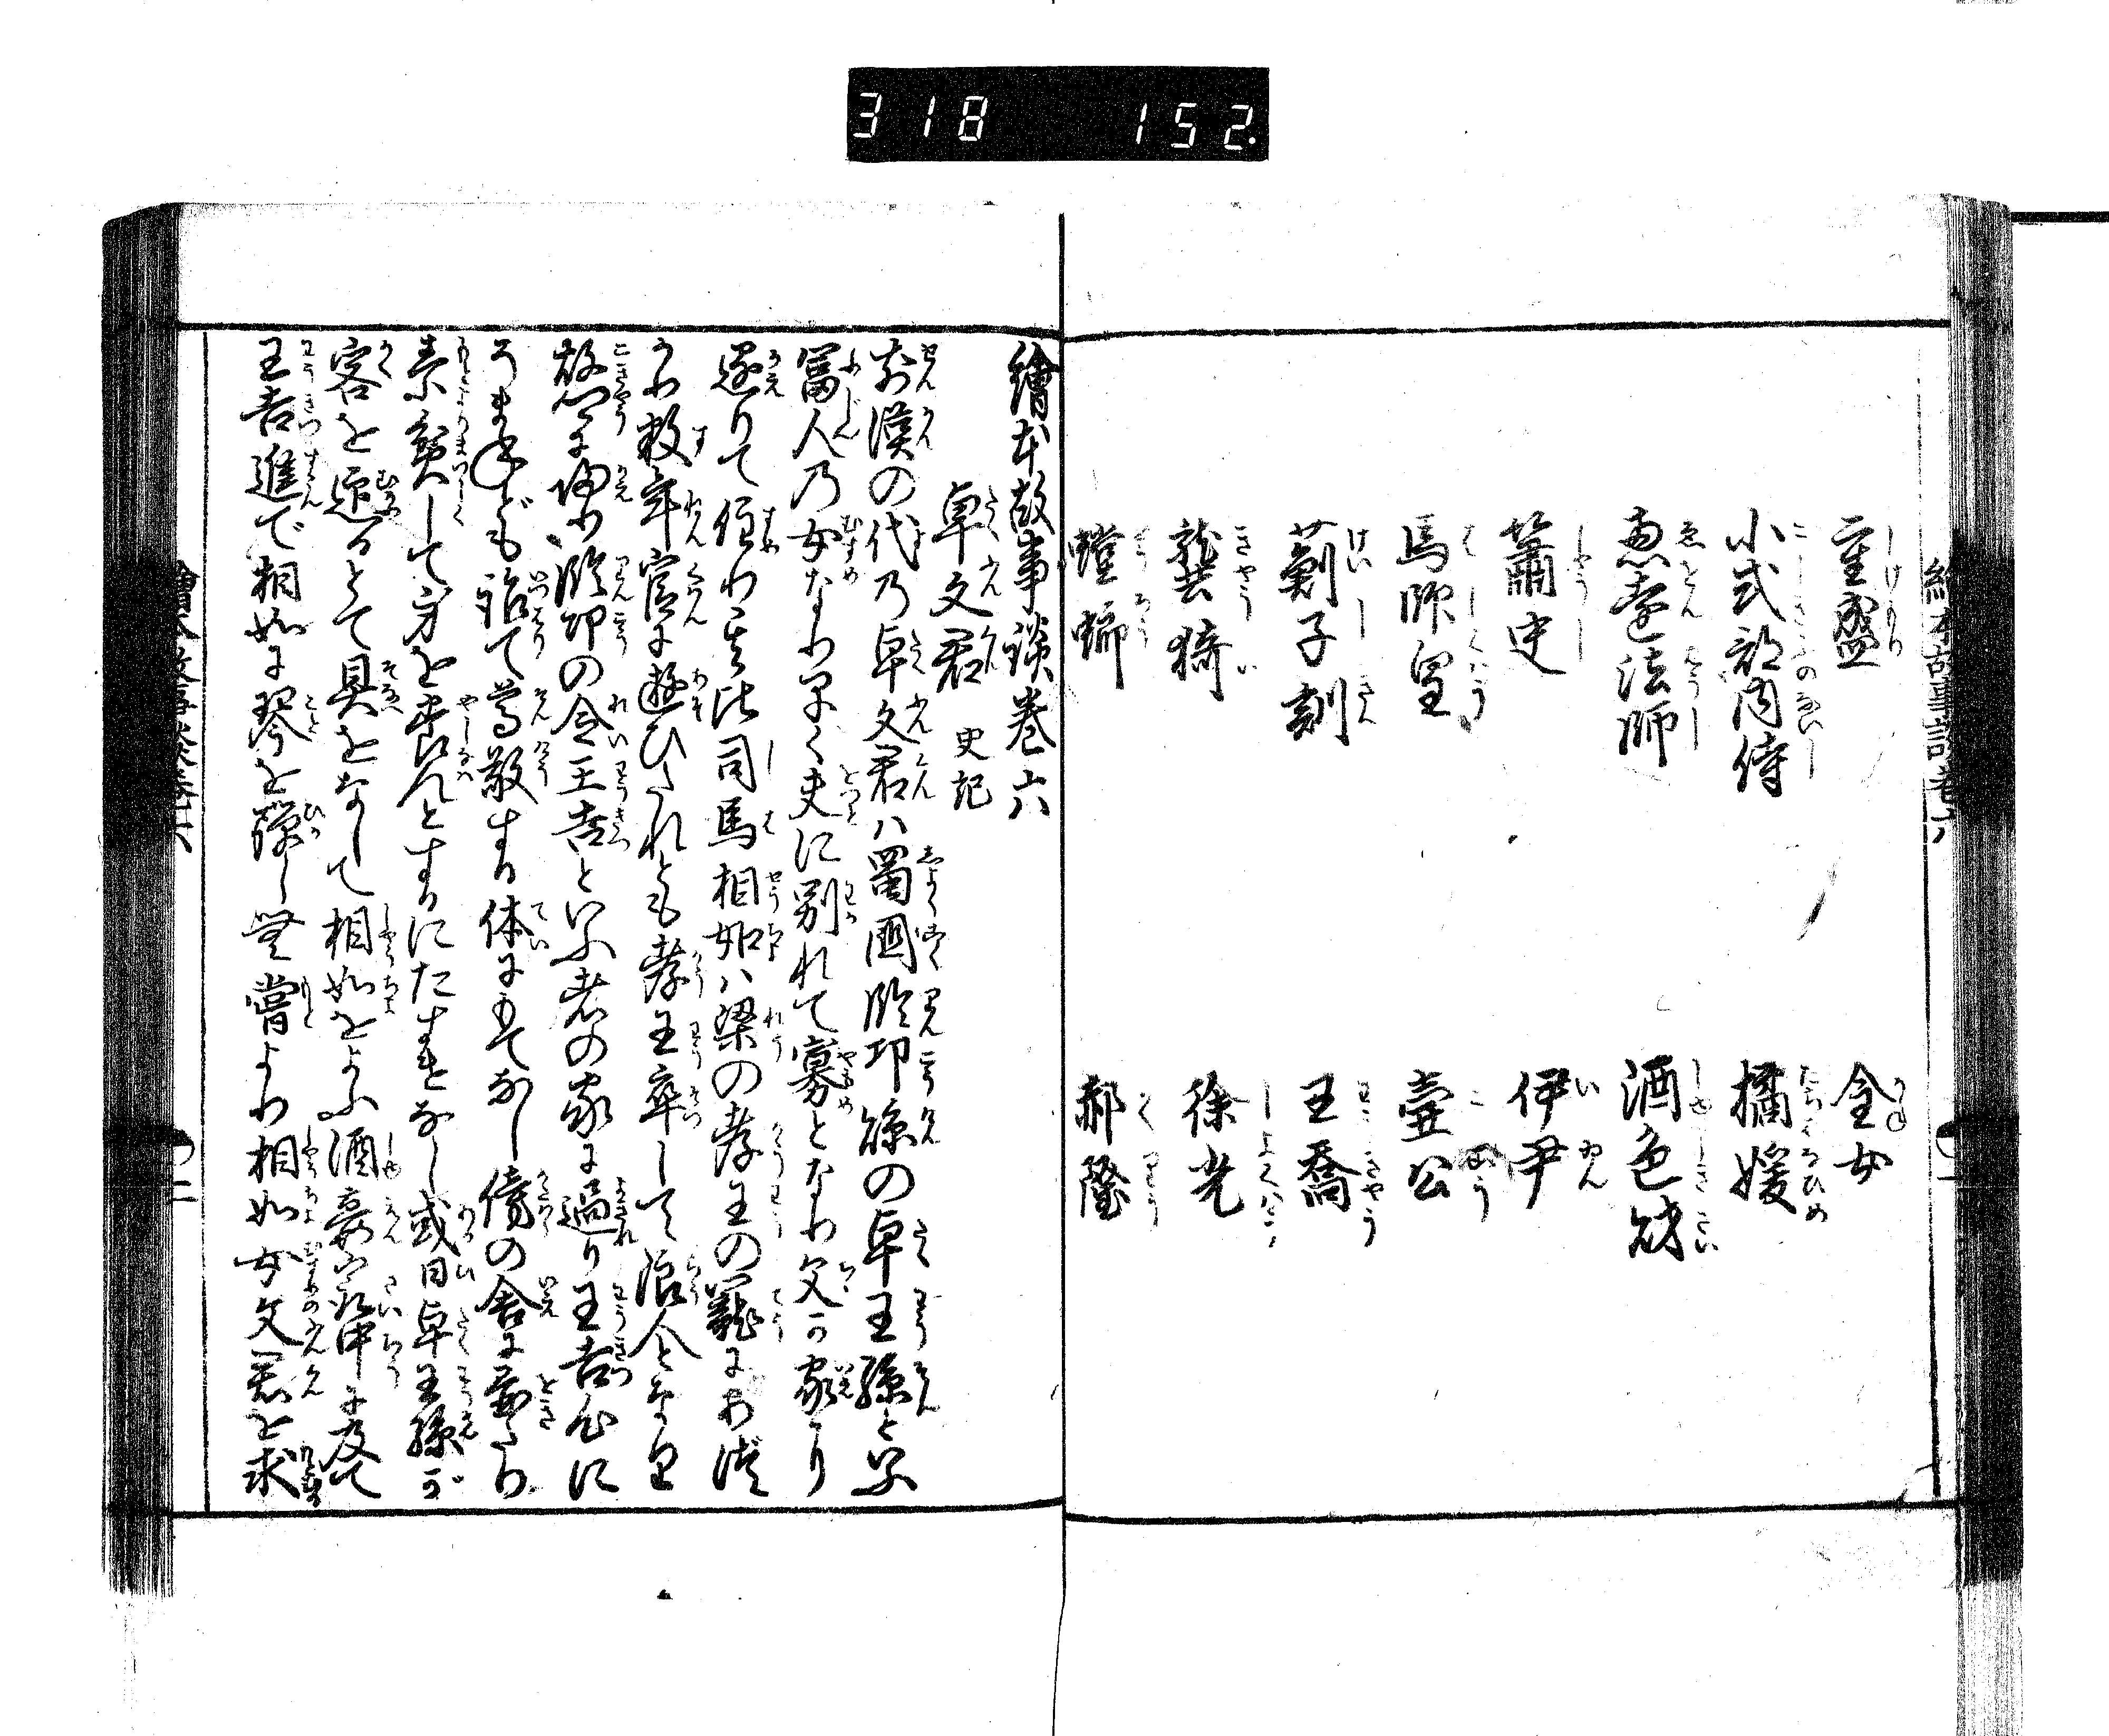 318 152.
繪本故事談卷六
重盛
金女
小式部内侍
橘媛
恵遠法師
酒色財
簫史
伊尹
馬師皇
壺公
薊子訓
王喬
龔猗
徐光
螳螂
郝隆
繪本故事談卷六
卓文君 史記
前漢の代乃卓文君ハ蜀國臨邛縣の卓王孫と云
冨人乃女なり早く夫に別れて寡となり父の家に
還りて住わる此司馬相如ハ梁の孝王の寵にあづ
かり数年官に遊びたれども孝王卒して浪人となり
故郷に帰り臨邛の令王吉といふ者の家に過り王吉心に
うまずども詣て尊敬する体にもてなし傍の舎に
素貧して身を養んとするにたすけなし或日卓王孫が
客を迎るとて具をなして相如をよふ酒宴最中に及て
王吉進で相如に琴を弾し無嘗より相如女文君を求
繪本故事談卷六
二